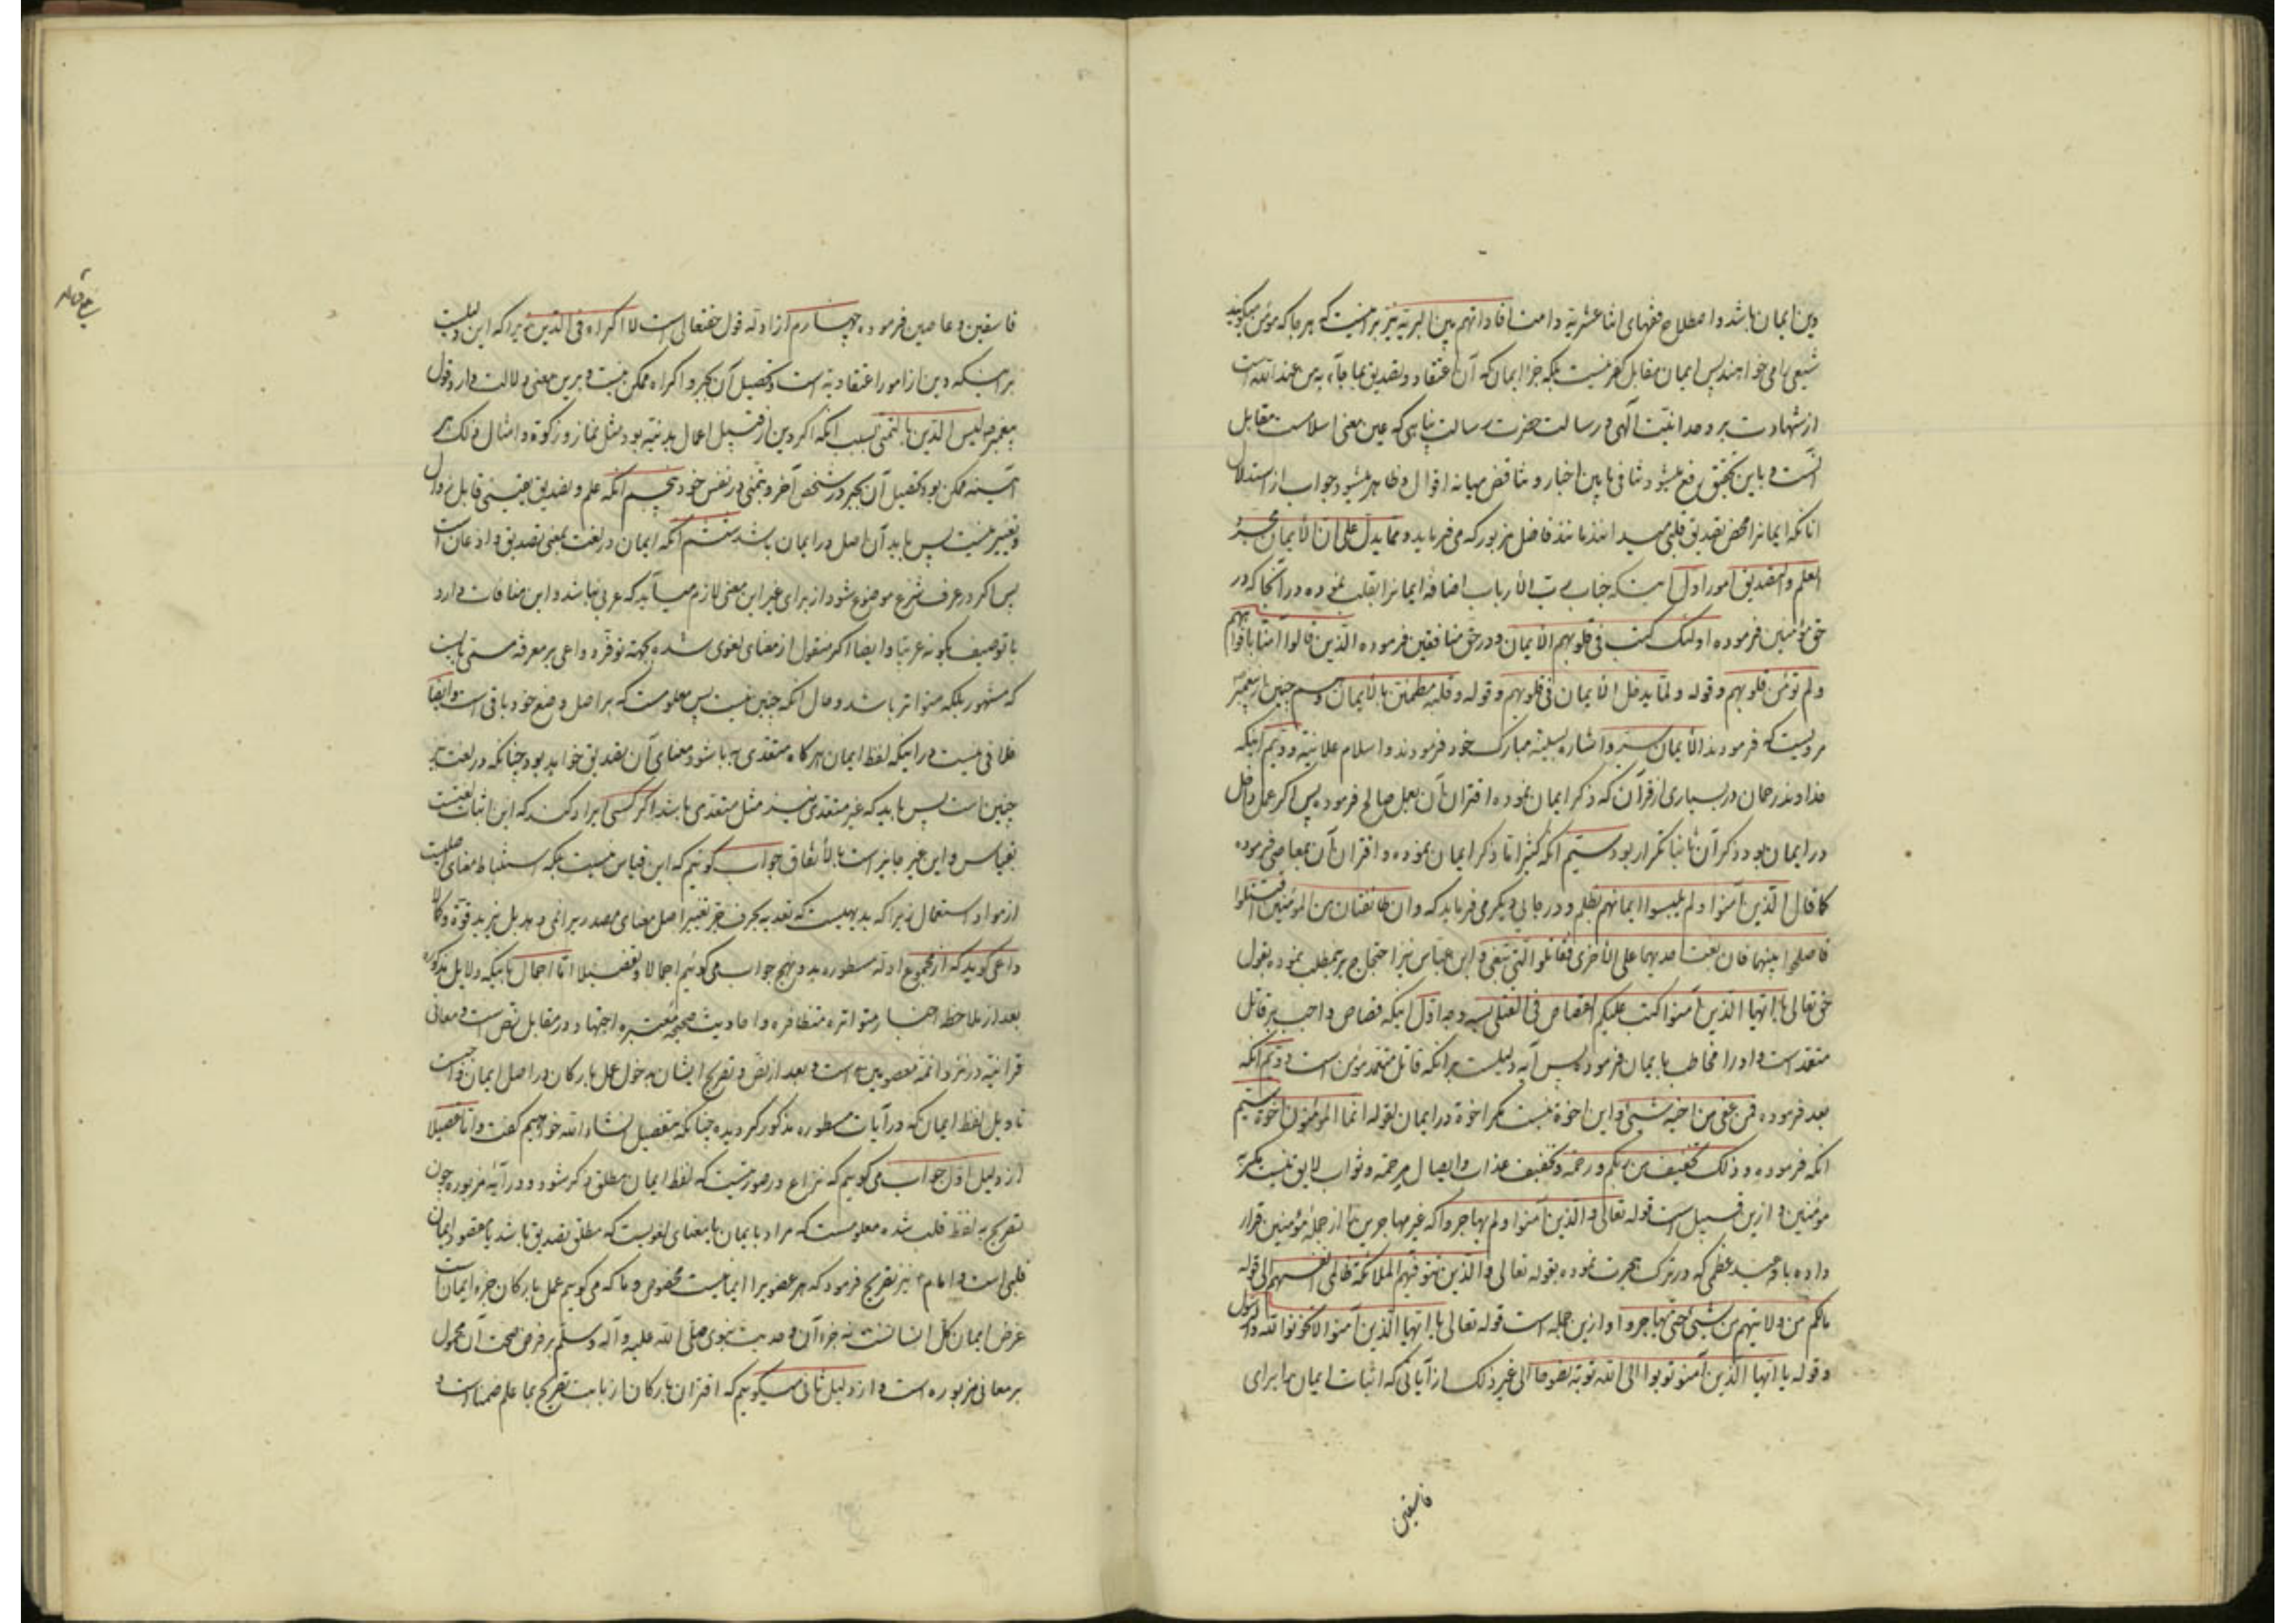 دین ایمان باشد و اصطلاح فقهای اثنا عشریة دامت افاداتهم بین البریة نیز بر اینست که هر جا که مؤمن میگویند
شیعی را می خواهند پس ایمان مقابل کفر نیست بلکه جزء ایمان که آن اعتقاد و تصدیق بما جاء به من عند الله است
از شهادت بر وحدانیت آلهی و رسالت حضرت رسالت پناهی که عین معنی اسلامست مقابل
آنست و باین تحقیق رفع میشود تنافی ما بین اخبار و تناقض میانه اقوال و ظاهر میشود جواب از استدلال
آنانکه ایمانرا محض تصدیق قلبی میدانند مانند فاضل مزبور که می فرماید و مما یدل علی ان الایمان مجرد
العلم و التصدیق امور اول اینست که جناب رب الارباب اضافه ایمانرا بقلب نموده در آنجا که در
حق مؤمنین فرموده اولئک کتب فی قلوبهم الایمان و در حق منافقین فرموده الذین قالوا آمنا بافواههم
و لم تؤمن قلوبهم و قوله و لما یدخل الایمان فی قلوبهم و قوله و قلبه مطمئن بالایمان و همچنین از پیغمبر
مرویست که فرمودند الایمان سر و اشاره بسینه مبارک خود فرمودند و اسلام علانیة و دویم اینکه
خداوند رحمان در بسیاری از قرآن که ذکر ایمان نموده اقتران آن بعمل صالح فرموده پس اگر عمل داخل
در ایمان بود ذکر آن ثانیا تکرار بود سیم آنکه کثیرا ما ذکر ایمان نموده و اقتران آن بمعاصی فرموده
کما قال الذین آمنوا و لم یلبسوا ایمانهم بظلم و در جای دیگر می فرماید که و ان طائفتان من المؤمنین اقتتلوا
فاصلحوا بینهما فان بغت احدیهما علی الاخری فقاتلوا التی تبغی و ابن عباس نیز احتجاج بر این مطلب نموده بقول
حق تعالی یا ایها الذین آمنوا کتب علیکم القصاص فی القتلی بسه وجه اول اینکه قصاص واجب بر قاتل
متعمد است و او را مخاطب بایمان فرمود پس آیه دلیلست بر آنکه قاتل متعمد مؤمن است دویم آنکه
بعد فرموده فمن عفی من اخیه شیئ و این اخوة نیست مگر اخوة در ایمان لقوله انما المؤمنون اخوة سیم
آنکه فرموده و ذلک تخفیف من ربکم و رحمة و تخفیف عذاب و ایصال مرحمة و ثواب لایق نیست مگر به
مؤمنین و ازین قبیل است قوله تعالی و الذین آمنوا و لم یهاجروا که غیر مهاجرین را از جمله مؤمنین قرار
داده با وعید عظمی که در ترک هجرت نموده بقوله تعالی و الذین تتوفیهم الملائکة ظالمی انفسهم الی قوله
مالکم من ولایتهم من شیئ حتی یهاجروا و ازین جمله است قوله تعالی یا ایها الذین آمنوا لا تخونوا الله و الرسول
و قوله یا ایها الذین آمنوا توبوا الی الله توبة نصوحا الی غیر ذلک از آیاتی که اثبات ایمان را برای
فاسقین
فاسقین و عاصین فرموده چهارم از ادله قول حقتعالی است لا اکراه فی الدین زیرا که این دلیلست
بر اینکه دین از امور اعتقادیه است و تحصیل آن بجبر و اکراه ممکن نیست و برین معنی دلالت دارد قول
پیغمبر ص لیس الدین بالتمنی بسبب آنکه اگر دین از قبیل اعمال بدنیه بود مثل نماز و زکوة و امثال ذلک هر
آینه ممکن بود تحصیل آن بجبر در شخص آخر و بتمنی در نفس خود پنجم آنکه علم و تصدیق یقینی قابل زوال
و تغییر نیست پس باید آن اصل در ایمان باشد ششم آنکه ایمان در لغت بمعنی تصدیق و اذعان است
پس اگر در عرف شرع موضوع شود از برای غیر این معنی لازم میآید که عربی نباشد و این منافات دارد
با توصیف بکونه عربیا و ایضا اگر منقول از معنای لغوی شده بجهة توفر دواعی بر معرفة مسمی بایست
که مشهور بلکه متواتر باشد و حال آنکه چنین نیست پس معلومست که بر اصل وضع خود باقی است و ایضا
خلافی نیست در اینکه لفظ ایمان هر گاه متعدی بباء شود معنای آن تصدیق خواهد بود چنانکه در لغت نیز
چنین است پس باید که غیر متعدی نیز مثل متعدی باشد اگر کسی ایراد کند که این اثبات لغتست
بقیاس و این غیر جایز است بالاتفاق جواب گوئیم که این قیاس نیست بلکه استنباط معنای اصلیست
از موارد استعمال زیرا که بدیهیست که تعدیه بحرف جر تغییر اصل معنای مصدر را نمی دهد بل یزید قوة و کمالا
داعی گوید که از مجموع ادله مسطوره بدو نهج جواب می گوئیم اجمالا و تفصیلا اما اجمالا باینکه دلایل مذکوره
بعد از ملاحظه اخبار متواتره متظافره و احادیث صحیحه معتبره اجتهاد در مقابل نص است و معانی
قرآنیه در نزد ائمه معصومین است و بعد از نص و تصریح ایشان بدخول عمل بارکان در اصل ایمان واجبست
تاویل لفظ ایمان که در آیات مسطوره مذکور گردیده چنانکه بتفصیل انشاء الله خواهیم گفت و اما تفصیلا
از دلیل اول جواب می گوییم که نزاع در صورتیست که لفظ ایمان مطلق ذکر شود و در آیه مزبوره چون
تصریح به لفظ قلب شده معلومست که مراد بایمان یا معنای لغویست که مطلق تصدیق باشد یا مقصود ایمان
قلبی است و امام ع نیز تصریح فرمود که هر عضو را ایمانیست مخصوص و ما که می گوییم عمل بارکان جزء ایمان است
غرض ایمان کل انسانست نه جزء آن و حدیث نبوی صلی الله علیه و آله و سلم بر فرض صحت آن محمول
بر معانی مزبوره است و از دلیل ثانی میگوییم که اقتران بارکان از بابت تصریح بما علم ضمنا است و